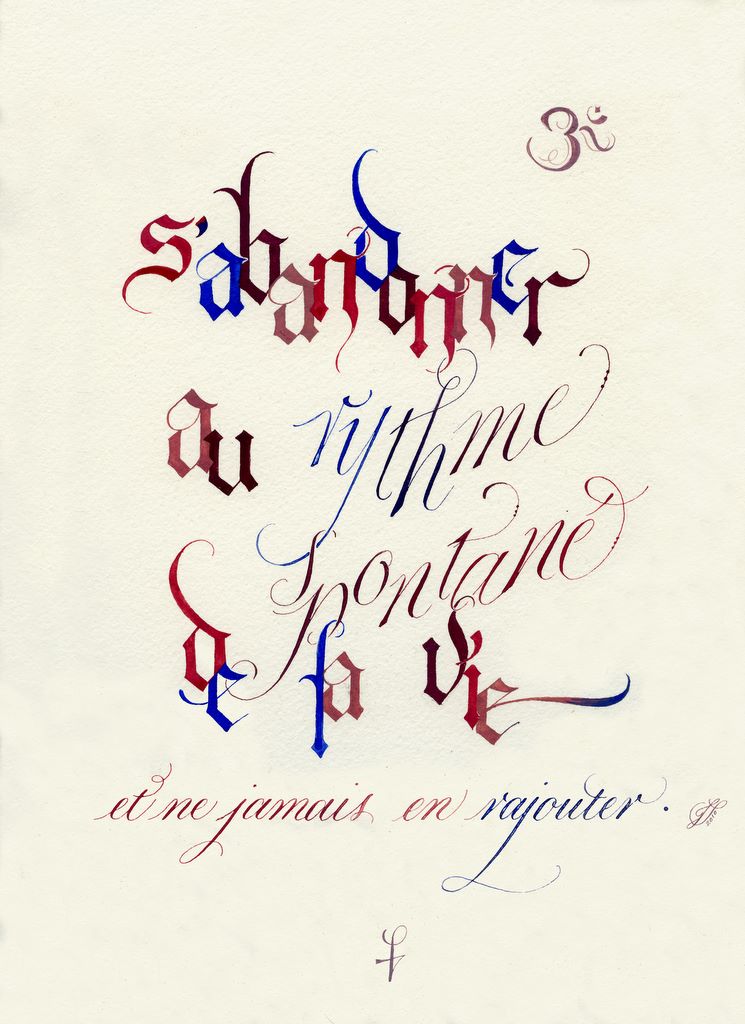 ॐ
s'abandonner
au rythme
spontané
de la vie
et ne jamais en rajouter.